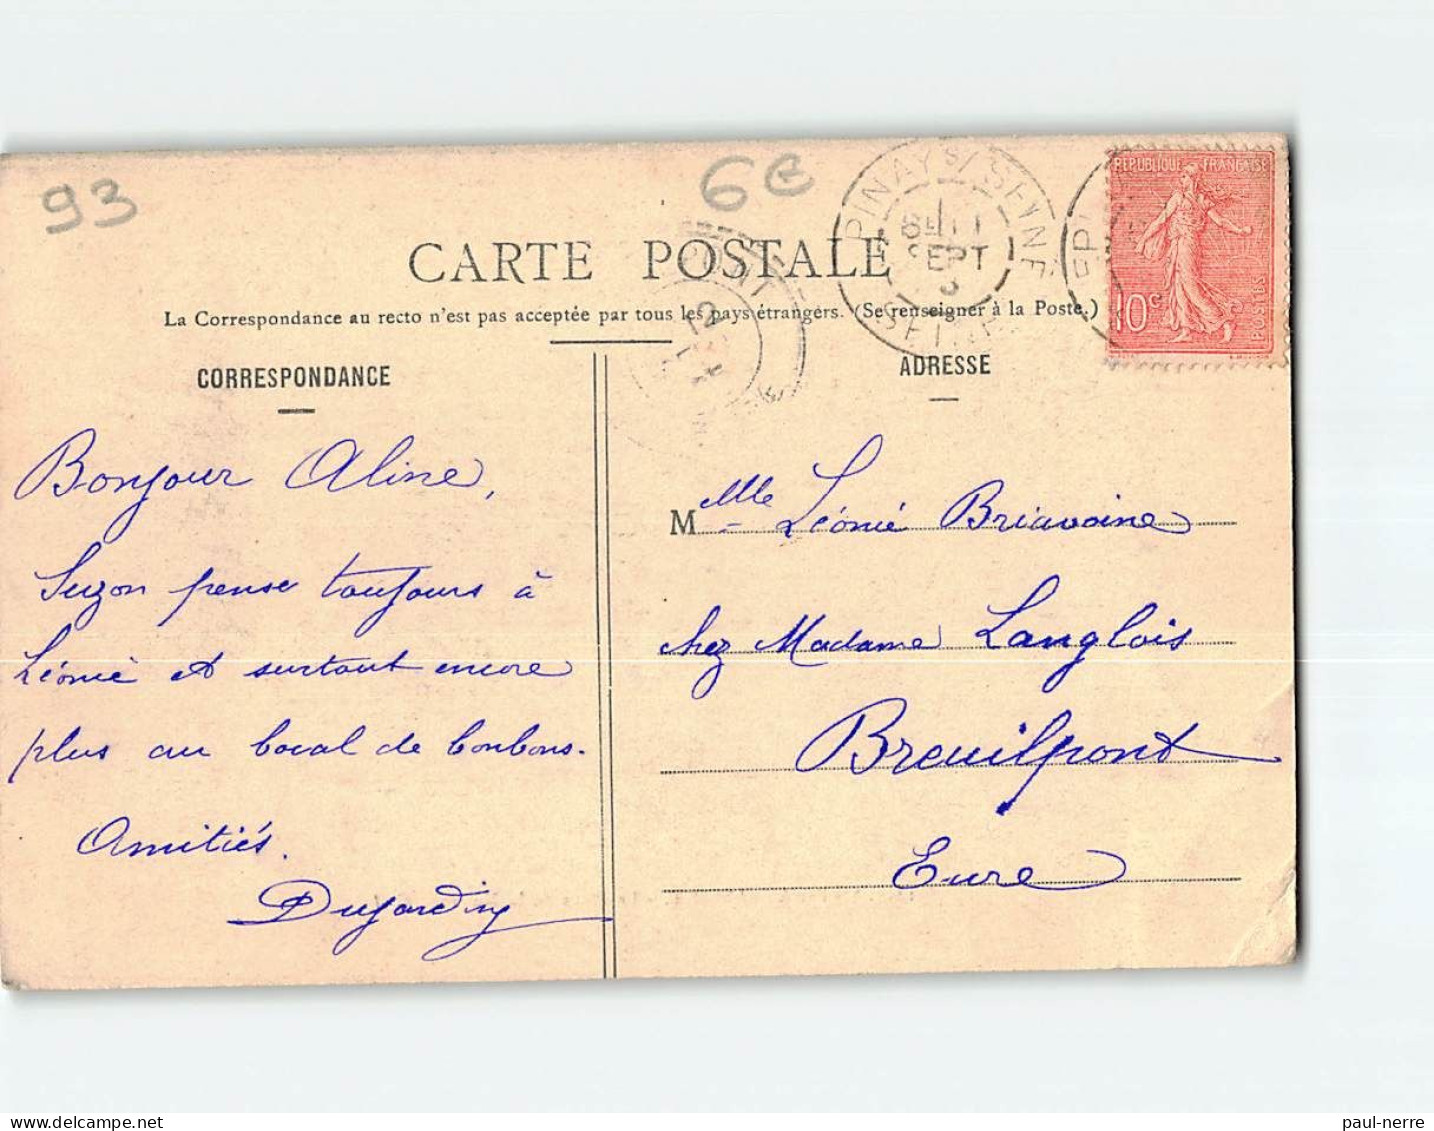 93
6e
CARTE POSTALE
La Correspondance au recto n'est pas acceptée par tous les pays étrangers. (Se renseigner à la Poste.)
REPUBLIQUE FRANÇAISE
10c
POSTES
PINAY S/ SEINE
11
SEPT
SEINE
EPI
PONT
12
CORRESPONDANCE
Bonjour Aline,
Suzon pense toujours à
Léonie et surtout encore
plus au bocal de bonbons.
Amitiés.
Dujardin
ADRESSE
Mlle Léonie Briavoine
chez Madame Langlois
Breuilpont
Eure
paul-nerre